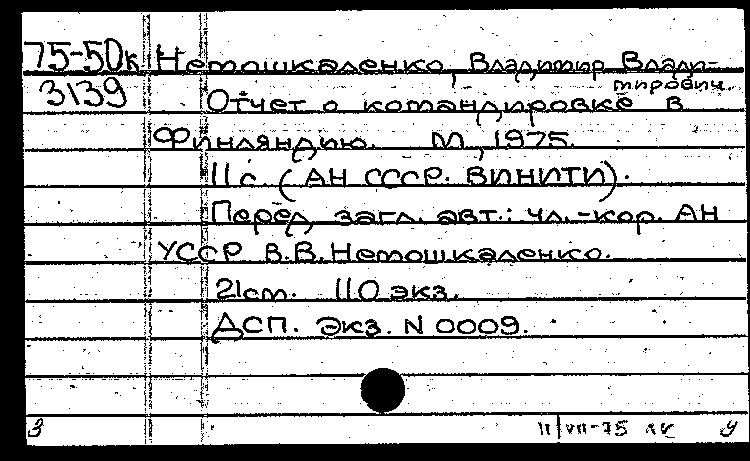 75-50к Немошкаленко, Владимир Влади-
тирович.
3139 Отчет о командировке в
Финляндию. М, 1975.
11 с. (АН СССР. ВИНИТИ).
Перед загл. авт.: чл.-кор. АН
УССР В.В. Немошкаленко.
21см. 110 экз.
ДСП. Экз. N 0009.
3 11/VII-75